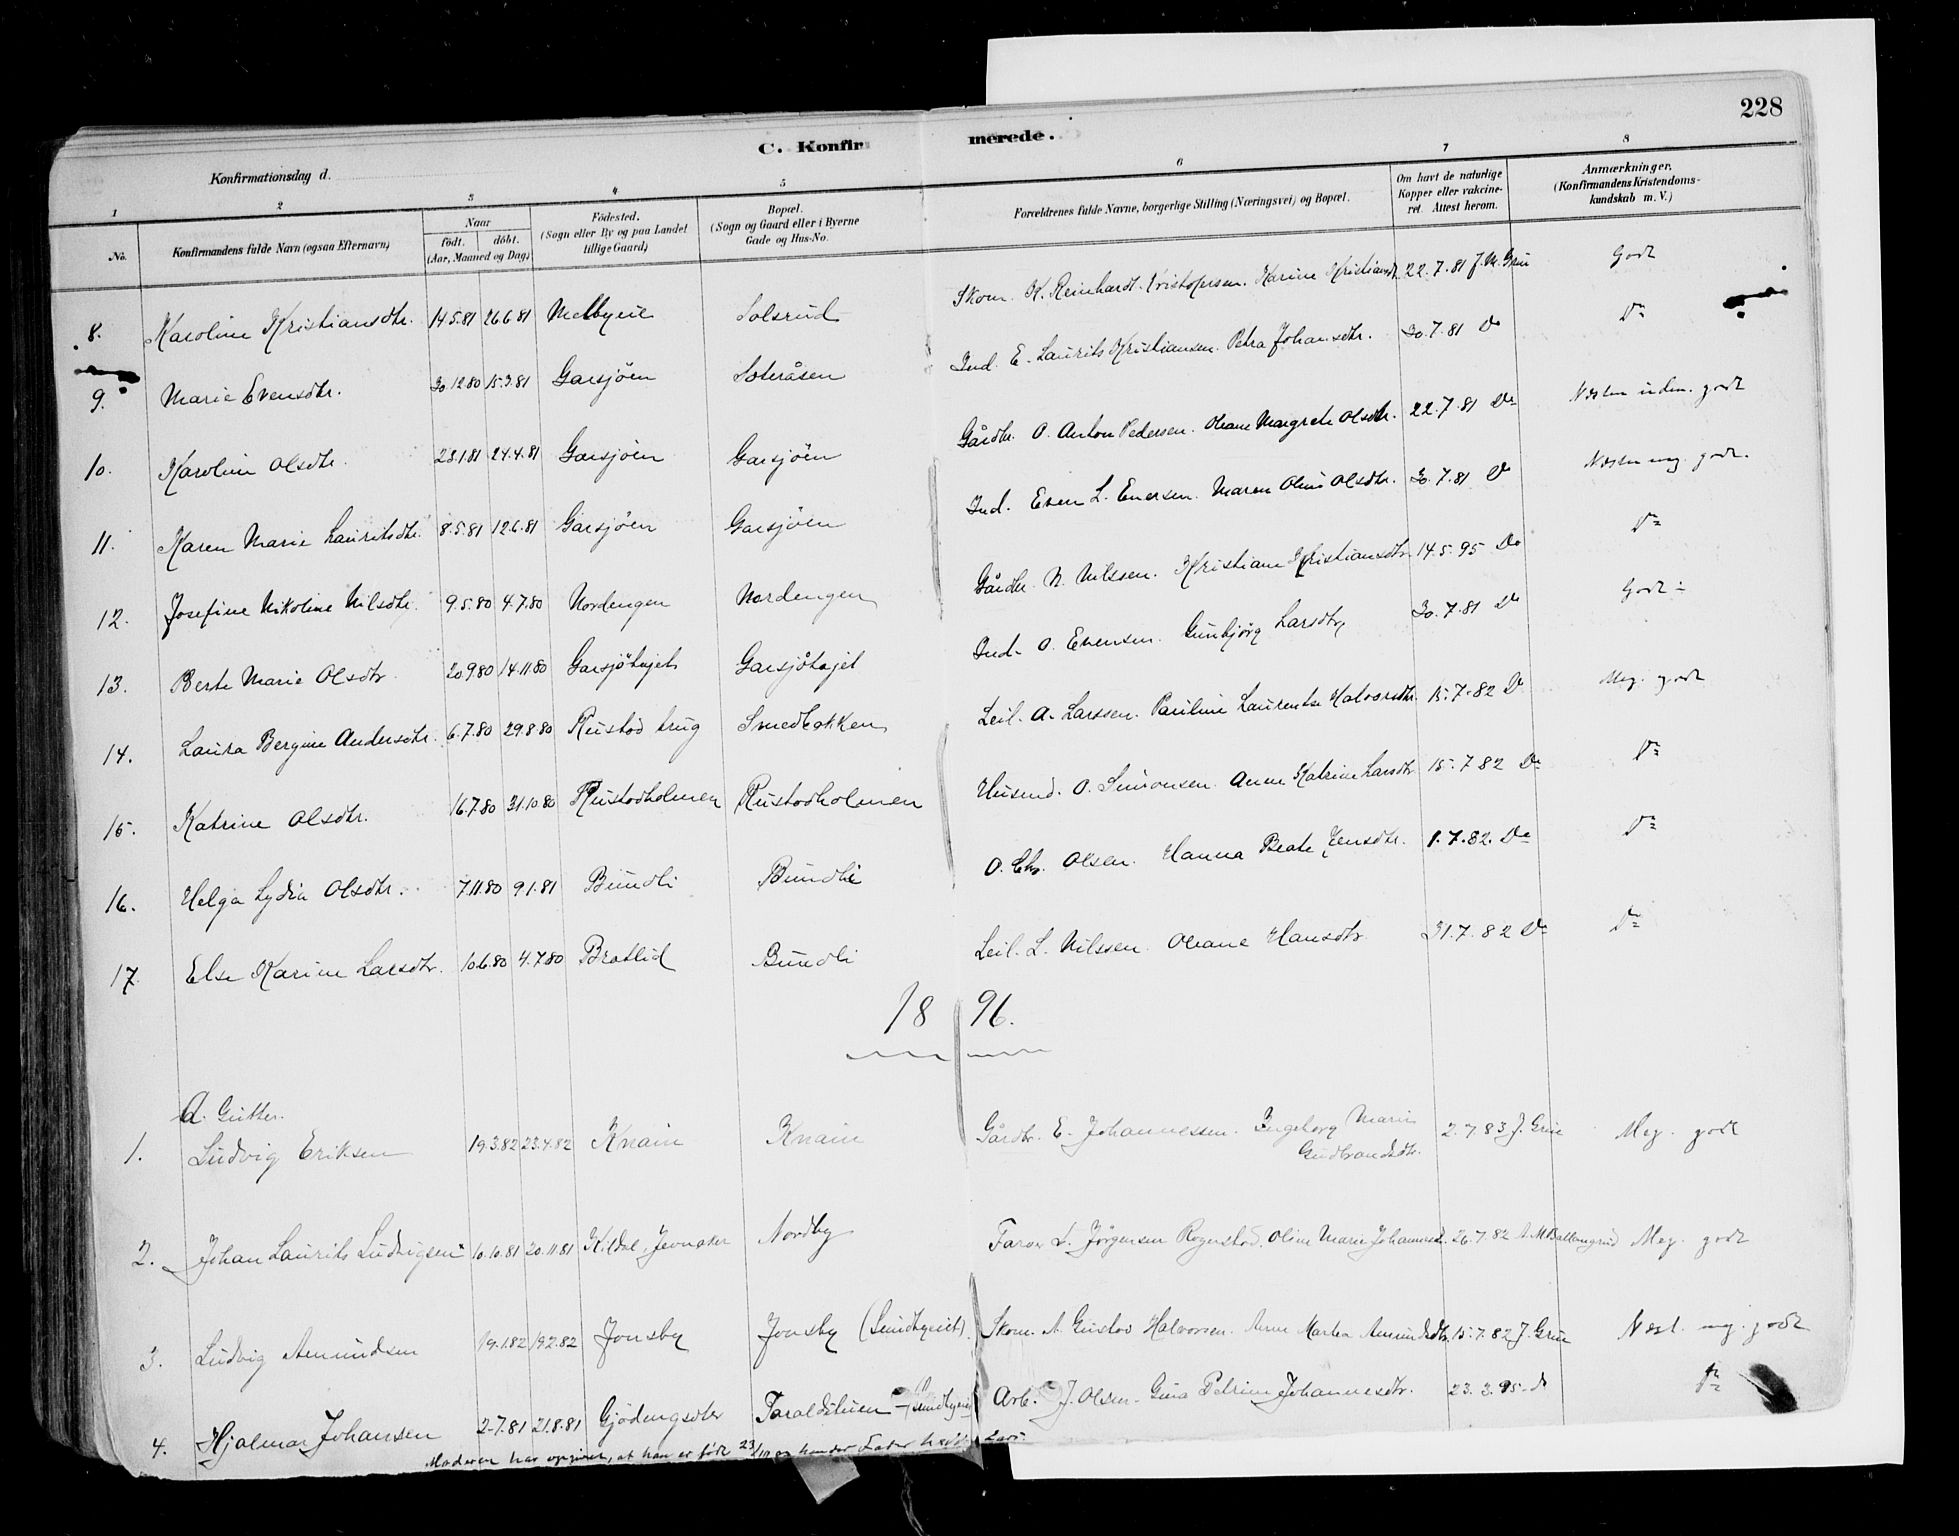 228
C. Konfirmerede.
Konfirmationsdag d.
1 2 3 4 5 6 7 8
No. Konfirmandens fulde Navn (ogsaa Efternavn) Naar født. døbt. (Aar, Maaned og Dag) Fødested. (Sogn eller By og paa Landet tillige Gaard) Bopæl. (Sogn og Gaard eller i Byerne Gade og Hus-No. Forældrenes fulde Navne, borgerlige Stilling (Næringsvei) og Bopæl. Om havt de naturlige Kopper eller vakcineret. Attest herom. Anmærkninger. (Konfirmandens Kristendomskundskab m. V.)
8. Karoline Kristiansdtr. 14.5.81 26.6.81 Melbyeie Solsrud Skom. K. Reinhardt Kristofersen. Karine Kristiansdtr. 22.7.81 J. M. Grui Godt
9. Marie Evensdtr. 30.12.80 15.3.81 Garsjöen Soteråsen Ind. E. Laurits Kristiansen. Petra Johansdtr. 30.7.81 Do Do
10. Karoline Olsdtr. 23.1.81 24.4.81 Garsjöen Garsjöen Gårdbr. O. Anton Pedersen. Oleane Margrete Olsdtr. 22.7.81 Do Næsten uden. godt
11. Karen Marie Lauritsdtr. 8.5.81 12.6.81 Garsjöen Garsjöen Ind. Even L. Enersen. Maren Oline Olsdtr. 30.7.81 Do Næsten mg. godt.
12. Josefine Nikoline Nilsdtr. 9.5.80 4.7.80 Nordengen Nordengen Gårdbr. N. Nilssen. Kristiane Kristiansdtr. 14.5.95 Do Do
13. Berte Marie Olsdtr. 20.9.80 14.11.80 Garsjöhajet Garsjöhajet Ind. O. Evensen. Gunbjörg Larsdtr. 30.7.81 Do Godt
14. Laura Bergine Andersdtr. 6.7.80 29.8.80 Rustad brug Smedbakken Leil. A. Larssen. Pauline Laurentze Halvorsdtr. 15.7.82 Do Meg. godt
15. Katrine Olsdtr. 16.7.80 31.10.80 Rustadholmen Rustadholmen Husmd. O. Simonsen. Anne Katrine Larsdtr. 15.7.82 Do Do
16. Helga Lydia Olsdtr. 7.11.80 9.1.81 Bundli Bundli O. Chr. Olsen. Hanna Beate Jensdtr. 1.7.82. Do Do
17 Else Karine Larsdtr. 10.6.80 4.7.80 Bratlid Bundli Leil. L. Nilssen. Oleane Hansdtr. 31.7.82 Do Do
1896.
A. Gutter.
1. Ludvig Eriksen 19.3.82 23.4.82 Knain Knain Gårdbr. E. Johannessen. Ingeborg Marie Gudbrandsdtr. 2.7.83 J. Grui Meg. godt
2. Johan Laurits Ludvigsen 10.10.81 20.11.81 Kildal, Jevnaker Nordby Farver L. Jörgensen Rognstad. Oline Marie Johannesd. 26.7.82 A. M. Ballangrud Meg. godt
3. Ludvig Amundsen 19.1.82 19.2.82 Jonsby Jonsby (Sundbyeiet). Skom. A. Gustav Halvorsen. Anne Martea Amundsdtr. 15.7.82 J. Grui Næst. mg. godt
4. Hjalmar Johansen 2.7.81 21.8.81 Gjödingseter Taraldstuen Sundbyeiet Arb. J. Olsen. Gina Petrine Johannesdtr. 23.3.95 Do Do
Moderen har opgivet, at han er født 23/10 og